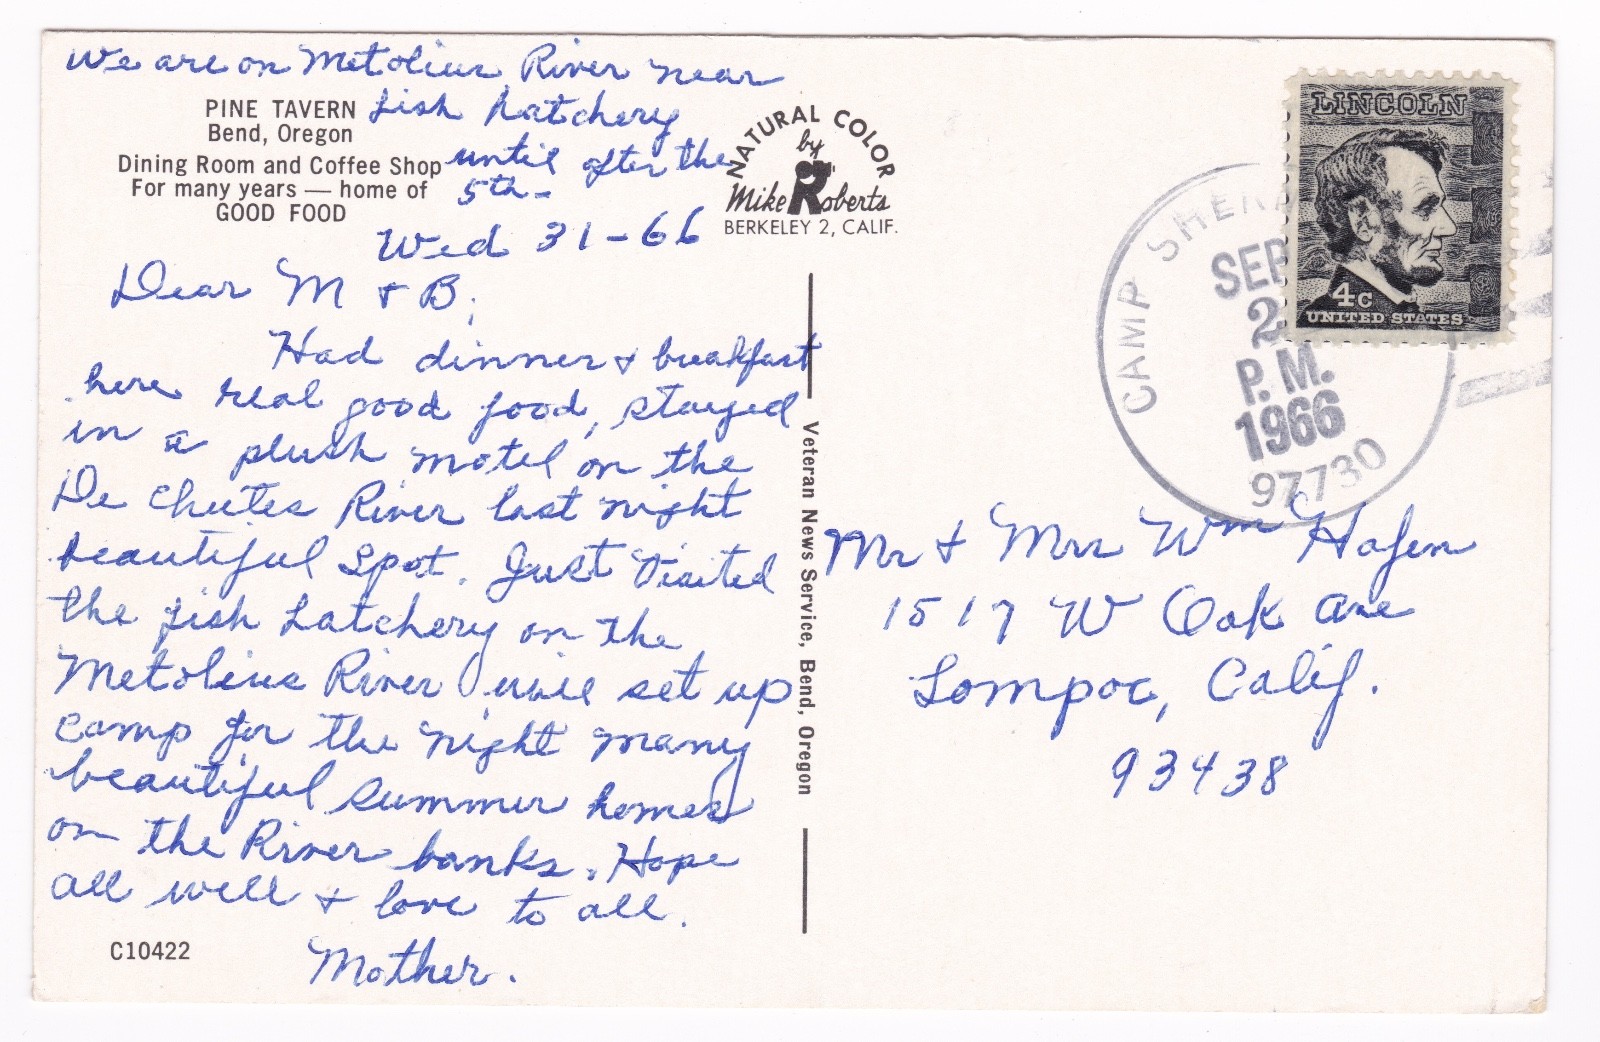 We are on Metolius River near
fish hatchery
until after the
5th-
PINE TAVERN
Bend, Oregon
Dining Room and Coffee Shop
For many years — home of
GOOD FOOD
NATURAL COLOR
by
Mike Roberts
BERKELEY 2, CALIF.
Wed 31-66
Dear M & B;
Had dinner & breakfast
here real good food, stayed
in a plush motel on the
De Chutes River last night
beautiful spot. Just visited
the fish hatchery on the
Metolius River will set up
camp for the night many
beautiful summer homes
on the River banks. Hope
all well & love to all.
Mother.
C10422
Veteran News Service, Bend, Oregon
LINCOLN
4c
UNITED STATES
CAMP SHER
SEP
2
P.M.
1966
97730
Mr & Mrs Wm Hafen
1517 W Oak Ave
Lompoc, Calif.
93438